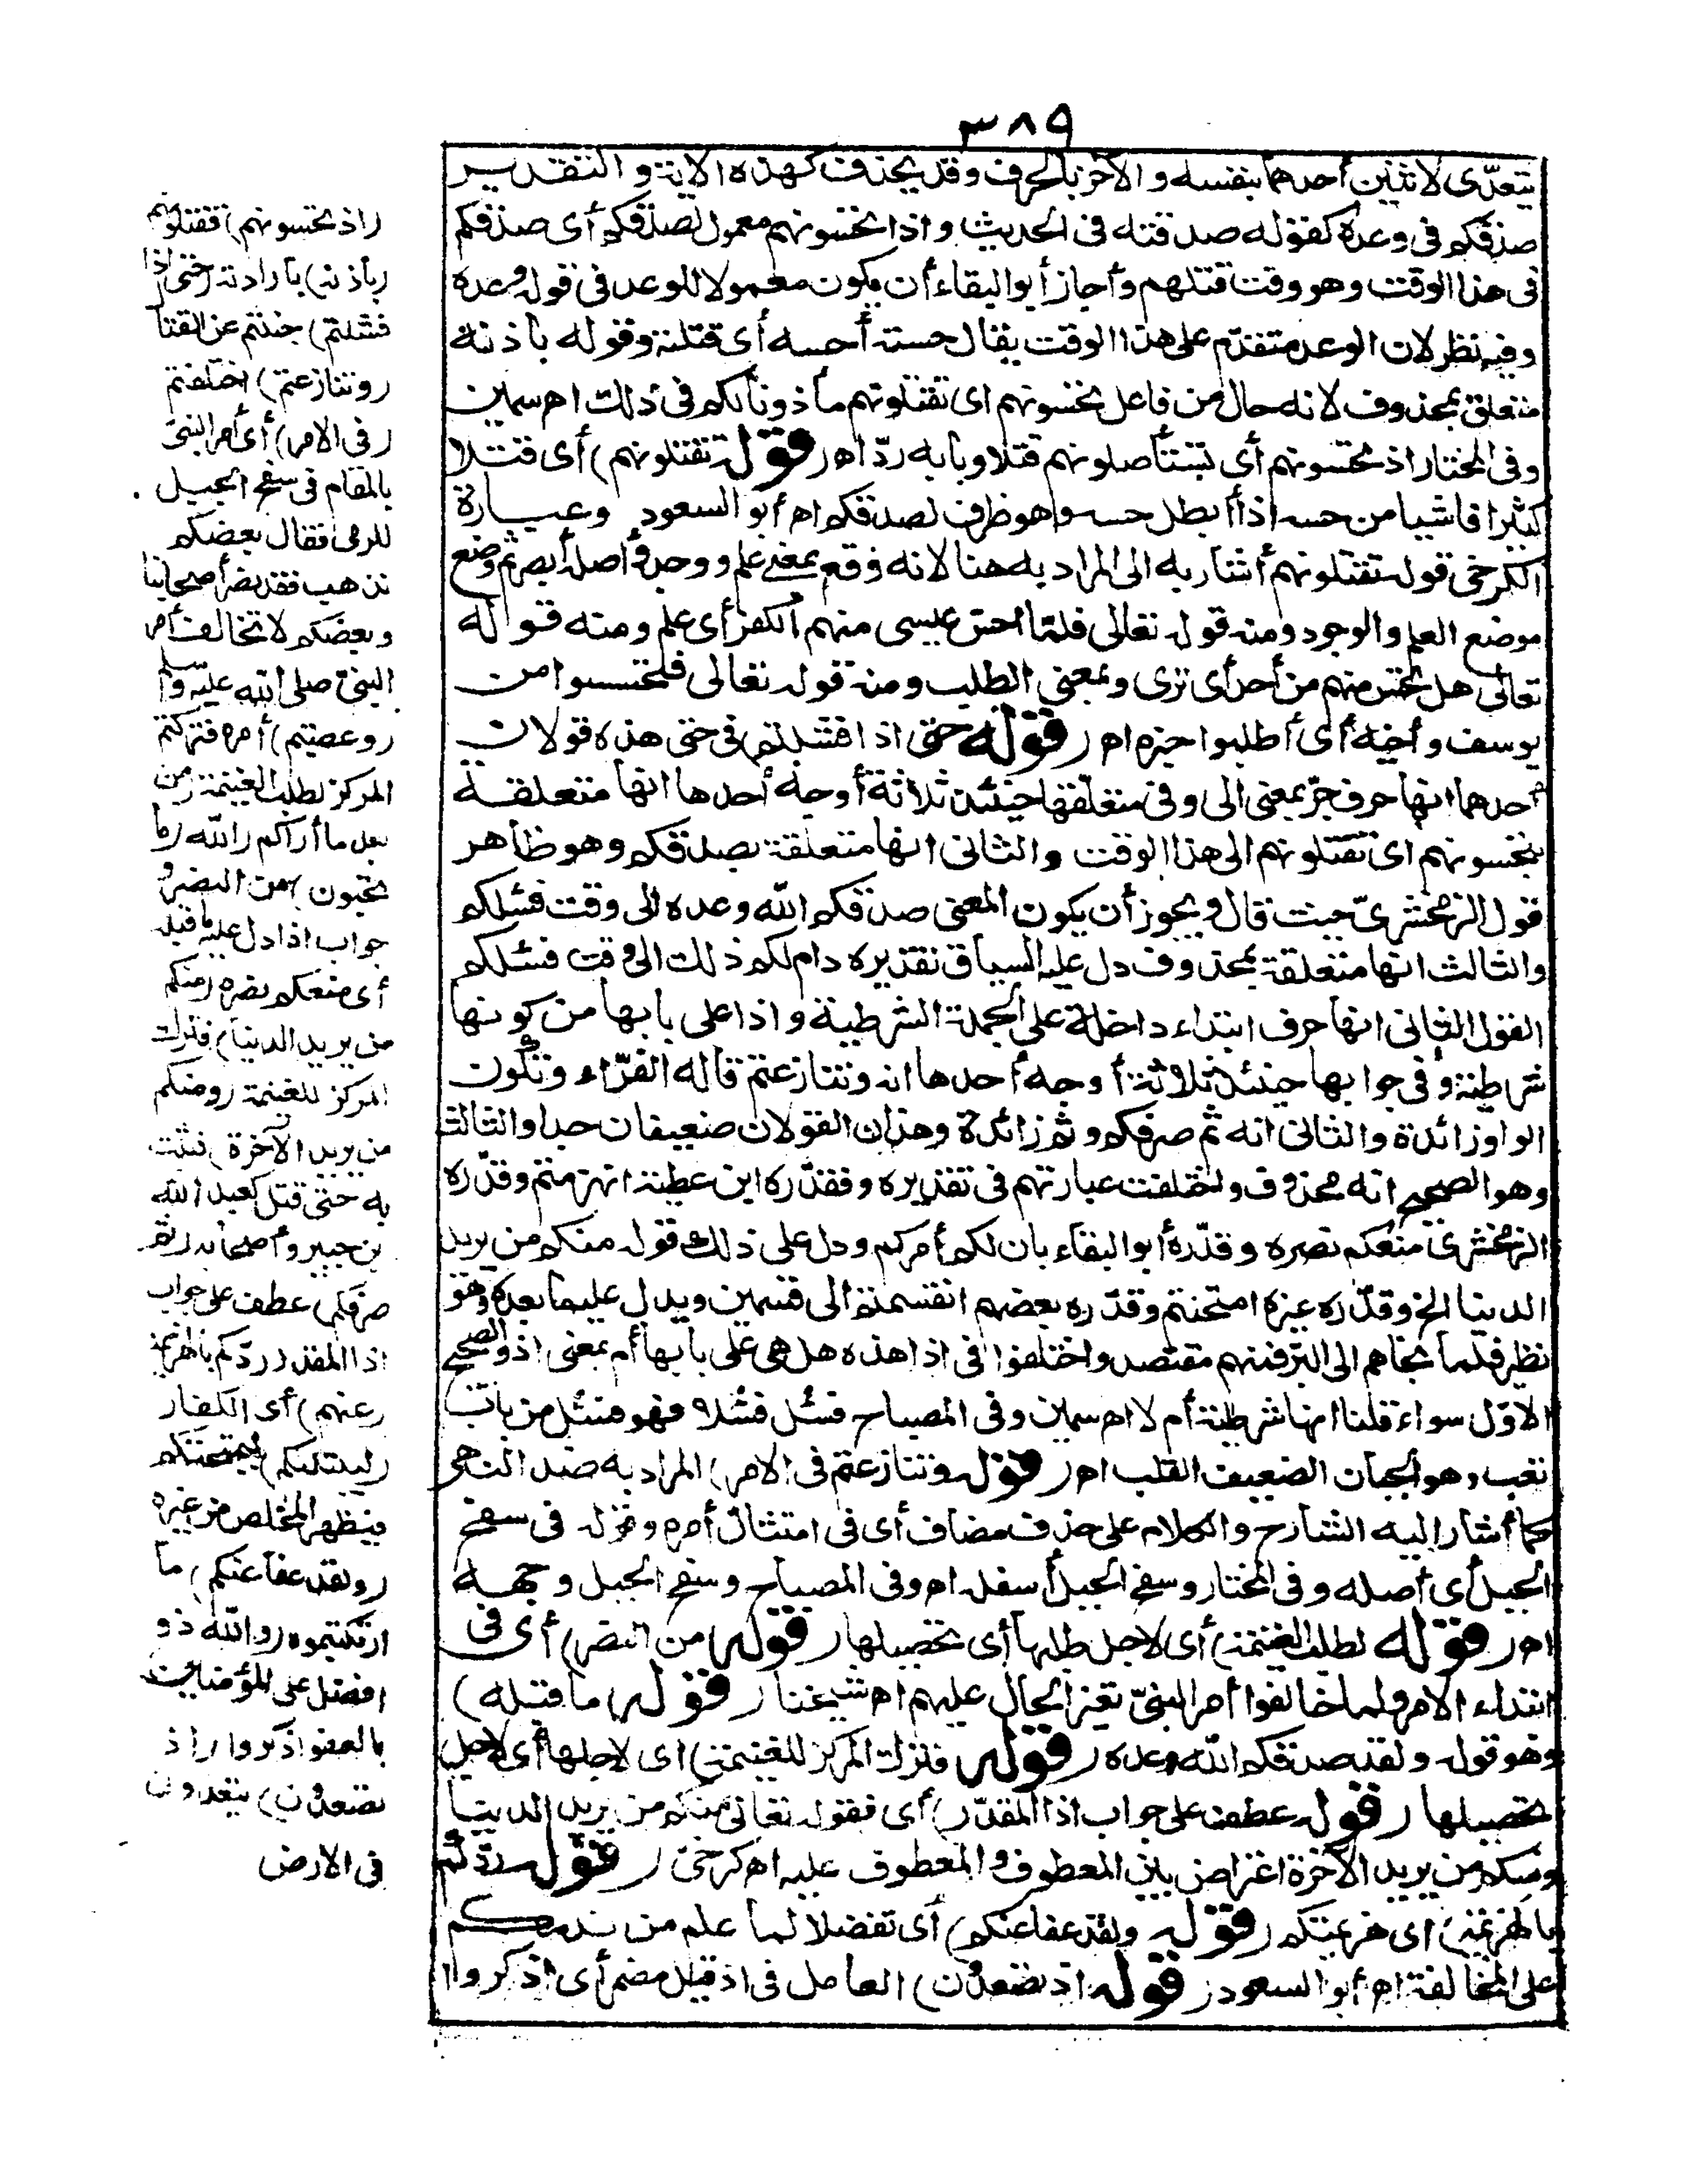 ٣٨٩
يتعدّى لاثنين أحدهما بنفسه والآخر بالحرف وقد يحذف كهذه الآية والتقدير
صدقكم فى وعده كقوله صدقته فى الحديث واذا تحسونهم معمول لصدقكم أى صدقكم
فى هذا الوقت وهو وقت قتلهم وأجاز أبو البقاء أن يكون معمولا للوعد فى قوله وعده
وفيه نظر لان الوعد متقدّم على هذا الوقت يقال حسسته أحسه أى قتلته وقوله باذنه
متعلق بمحذوف لانه حال من فاعل تحسونهم اى تقتلونهم مأذونا لكم فى ذلك اه سمين
وفى المختار اذ تحسونهم أى تستأصلونهم قتلا وبابه ردّ اه (قوله تقتلونهم) أى قتلا
كثيرا فاشيا من حسه اذا أبطل حسه وهو ظرف لصدقكم اه أبو السعود وعبارة
الكرخى قوله تقتلونهم أشار به الى المراد به هنا لانه وقع بمعنى علم ووجد وأصله أبصر ثم وضع
موضع العلم والوجود ومنه قوله تعالى فلمّا احسّ عيسى منهم الكفر أى علم ومنه قوله
تعالى هل تحس منهم من أحد أى ترى وبمعنى الطلب ومنه قوله تعالى فتحسسوا من
يوسف وأخيه أى أطلبوا خبره اه (قوله حتى اذا فشلتم) فى حتى هذه قولان
أحدهما انها حرف جرّ بمعنى الى وفى متعلّقها حينئذ ثلاثة أوجه أحدها انها متعلقة
بتحسونهم اى تقتلونهم الى هذا الوقت والثانى انها متعلقة بصدقكم وهو ظاهر
قول الزمخشرىّ حيث قال ويجوز أن يكون المعنى صدقكم الله وعده الى وقت فشلكم
والثالث انها متعلقة بمحذوف دل عليه السياق تقديره دام لكم ذلك الى وقت فشلكم
القول الثانى انها حرف ابتداء داخلة على الجملة الشرطية واذا على بابها من كونها
شرطية وفى جوابها حينئذ ثلاثة أوجه أحدها انه وتنازعتم قاله الفرّاء وتكون
الواو زائدة والثانى انه ثم صرفكم وثم زائدة وهذان القولان ضعيفان جدا والثالث
وهو الصحيح انه محذوف واختلفت عبارتهم فى تقديره وفقدّره ابن عطية انهزمتم وقدّره
الزمخشرى منعكم نصره وقدّره أبو البقاء بان لكم أمركم ودل على ذلك قوله منكم من يريد
الدنيا الخ وقدّره غيره امتحنتم وقدّره بعضهم انقسمتم الى قسمين ويدل عليه ما بعده وهو
نظير فلما نجاهم الى البرّ فمنهم مقتصد واختلفوا فى اذا هذه هل هى على بابها أم بمعنى اذ والصحيح
الاوّل سواء قلنا انها شرطية أم لا اه سمين وفى المصباح فشل فشلا فهو فشل من باب
تعب وهو الجبان الضعيف القلب اه (قوله وتنازعتم فى الامر) المراد به ضد النهى
كما أشار اليه الشارح والكلام على حذف مضاف أى فى امتثال أمره وقوله فى سفح
الجبل أى أصله وفى المختار وسفح الجبل أسفله اه وفى المصباح وسفح الجبل وجهه
اه (قوله لطلب الغنيمة) أى لاجل طلبها أى تحصيلها (قوله من النصر) أى فى
ابتداء الامر ولما خالفوا أمر النبىّ تغير الحال عليهم اه شيخنا (قوله ما قبله)
وهو قوله ولقد صدقكم الله وعده (قوله فترك المركز للغنيمة) اى لاجلها أى لاجل
تحصيلها (قوله عطف على جواب اذا المقدّر) أى فقوله تعالى منكم من يريد الدنيا
ومنكم من يريد الآخرة اعتراض بين المعطوف والمعطوف عليه اه كرخى (قوله ردّكم
بالهزيمة) اى هزيمتكم (قوله ولقد عفا عنكم) أى تفضلا لما علم من ندمكم
على المخالفة اه أبو السعود (قوله اذ تصعدون) العامل فى اذ قيل مضمر أى اذكروا
(اذ تحسونهم) تقتلونهم
(باذنه) بارادته (حتى اذا
فشلتم) جبنتم عن القتال
(وتنازعتم) اختلفتم
(فى الامر) أى أمر النبىّ
بالمقام فى سفح الجبل
للرمى فقال بعضكم
نذهب فقد نصر أصحابنا
وبعضكم لا تخالف أمر
النبىّ صلى الله عليه وسلم
(وعصيتم) أمره فتركتم
المركز لطلب الغنيمة (من
بعد ما أراكم) الله (ما
تحبون) من النصر و
جواب اذا دل عليه ما قبله
أى منعكم نصره (منكم
من يريد الدنيا) فترك
المركز للغنيمة (ومنكم
من يريد الآخرة) فثبت
به حتى قتل كعبد الله
بن جبير وأصحابه (ثم
صرفكم) عطف على جواب
اذا المقدر ردّكم بالهزيمة
(عنهم) أى الكفار
(ليبتليكم) ليمتحنكم
فيظهر المخلص من غيره
(ولقد عفا عنكم) ما
ارتكبتموه (والله ذو
فضل على المؤمنين)
بالعفو اذكروا (اذ
تصعدون) تبعدون
فى الارض